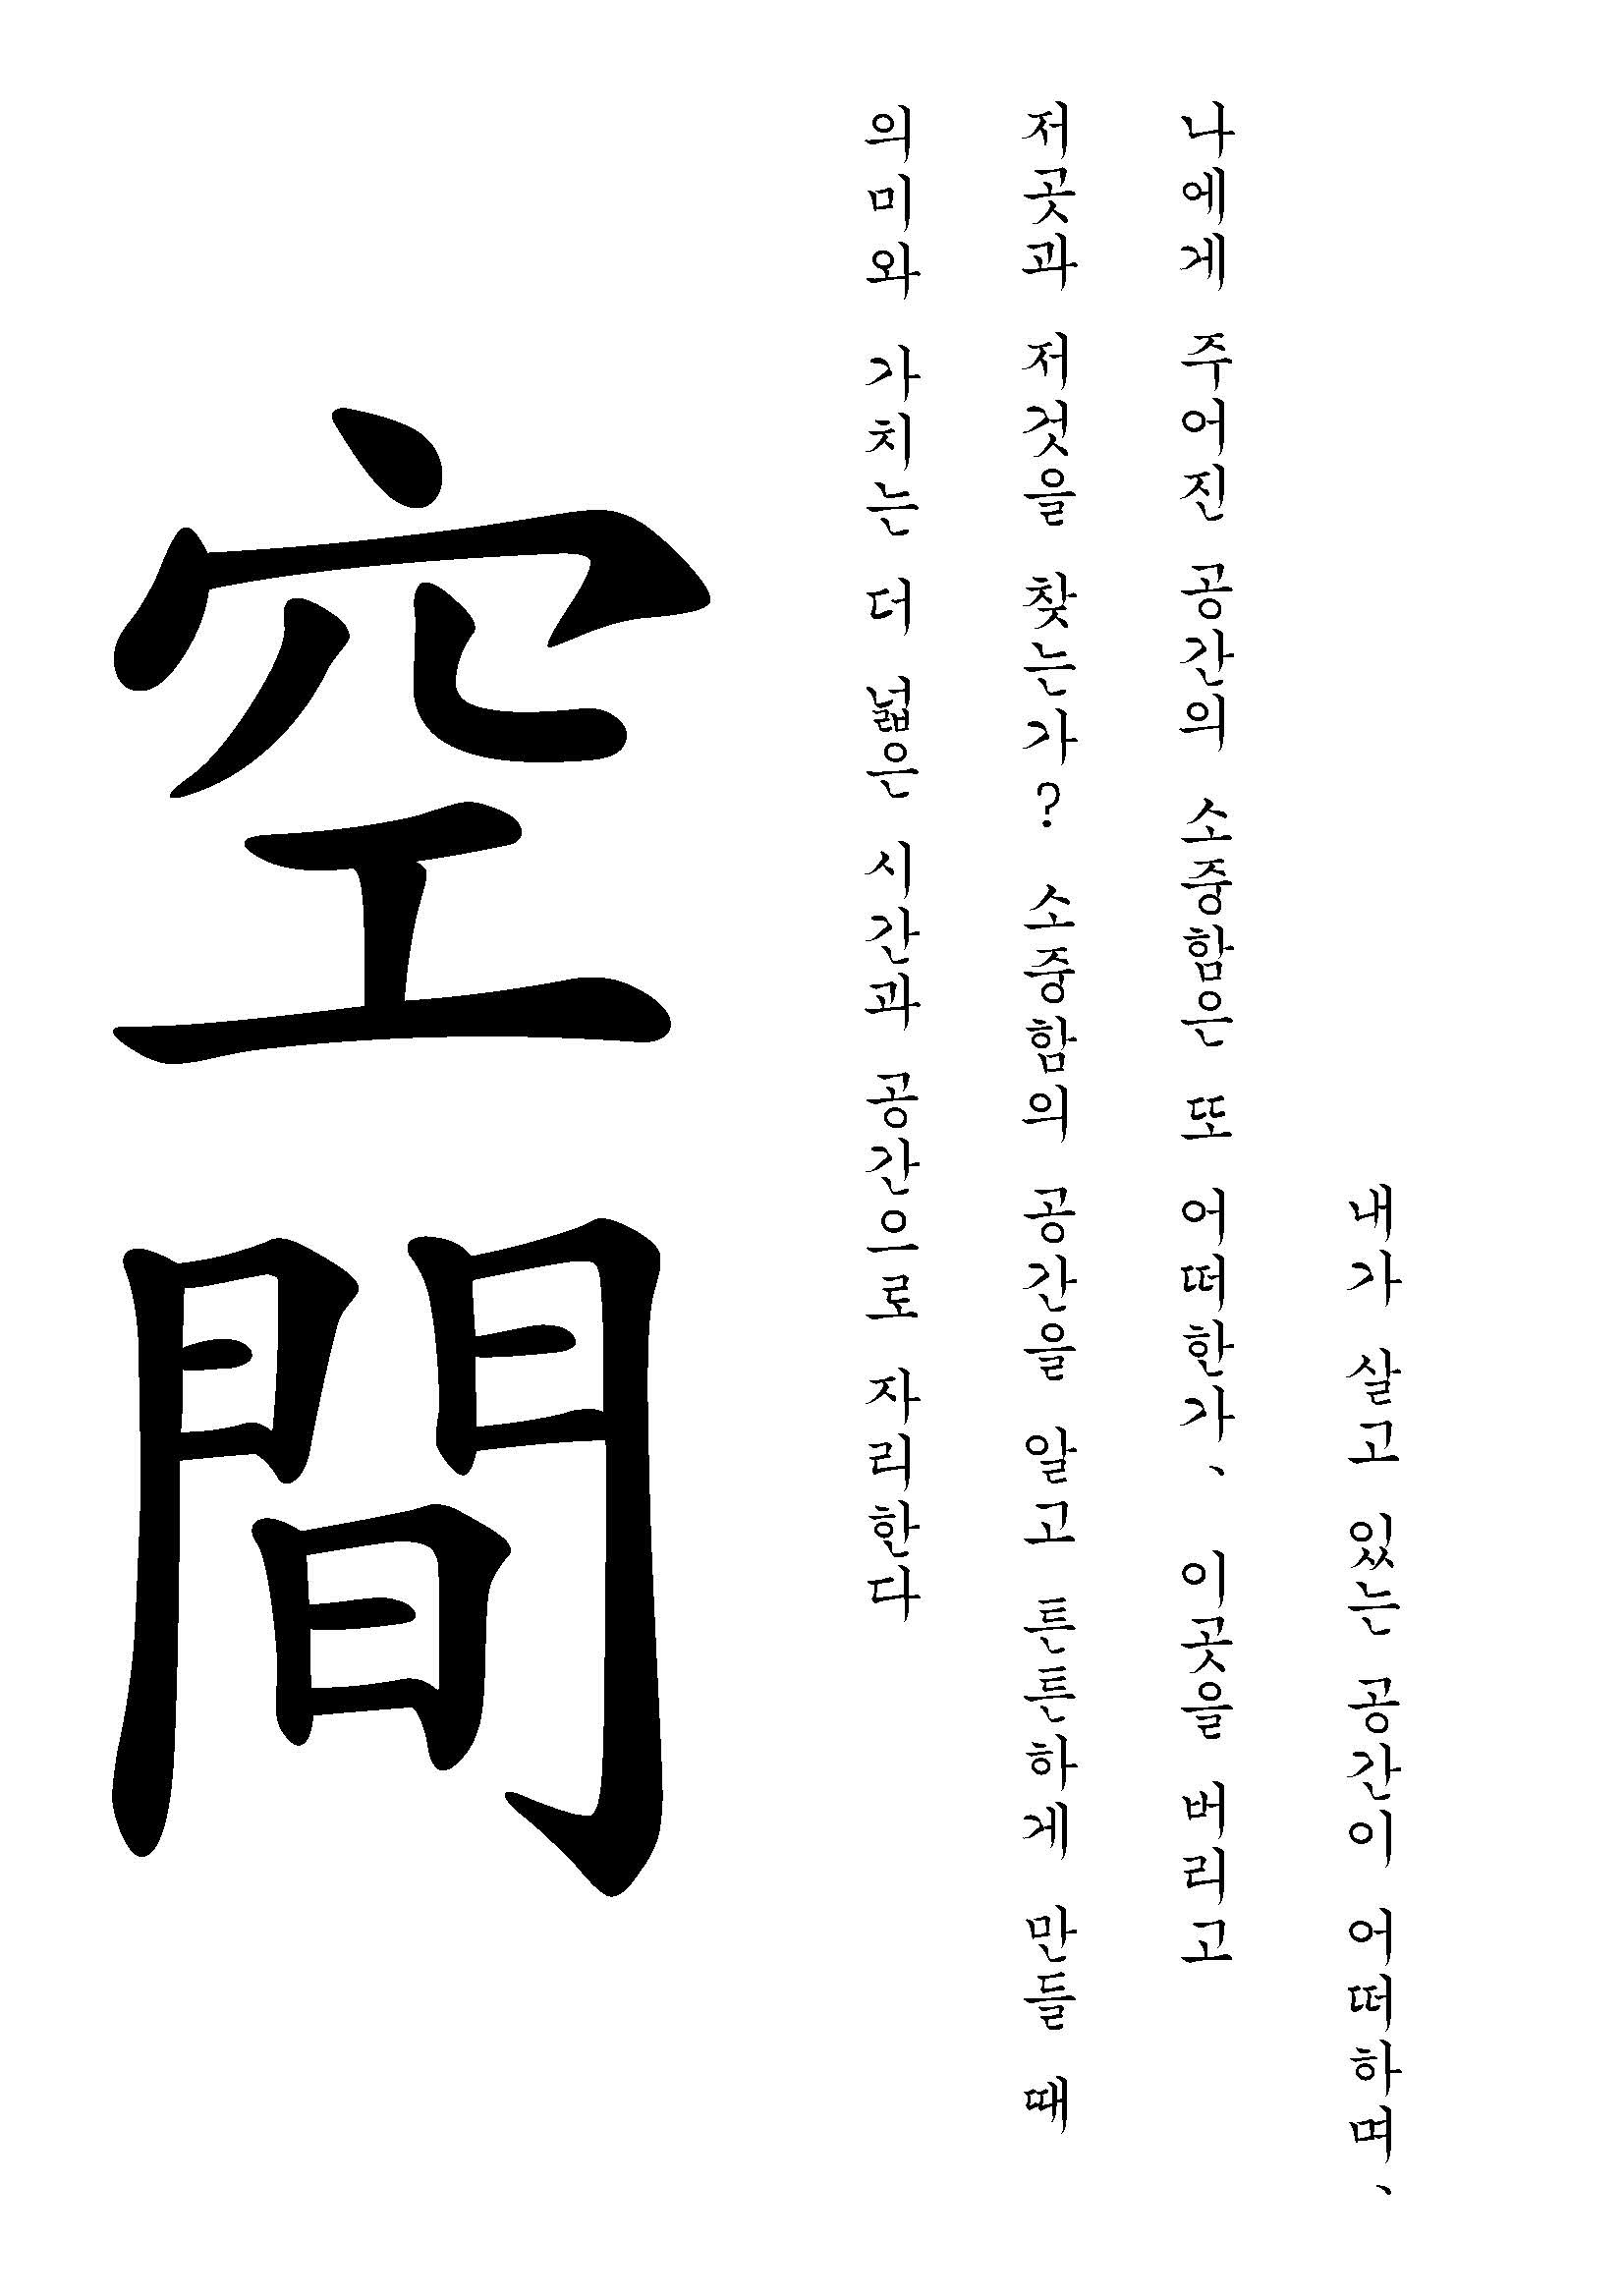 내가 살고 있는 공간이 어떠하며,
나에게 주어진 공간의 소중함은 또 어떠한가, 이곳을 버리고
저곳과 저것을 찾는가? 소중함의 공간을 알고 튼튼하게 만들 때
의미와 가치는 더 넓은 시간과 공간으로 자리한다
空間